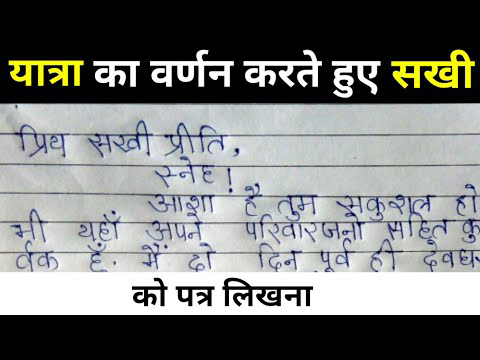 यात्रा का वर्णन करते हुए सखी
प्रिय सखी प्रीति,
स्नेह!
आशा है तुम सकुशल हो
भी यहाँ अपने परिवारजनों सहित कु
र्वक हूँ. मैं दो दिन पूर्व ही देवघर
को पत्र लिखना